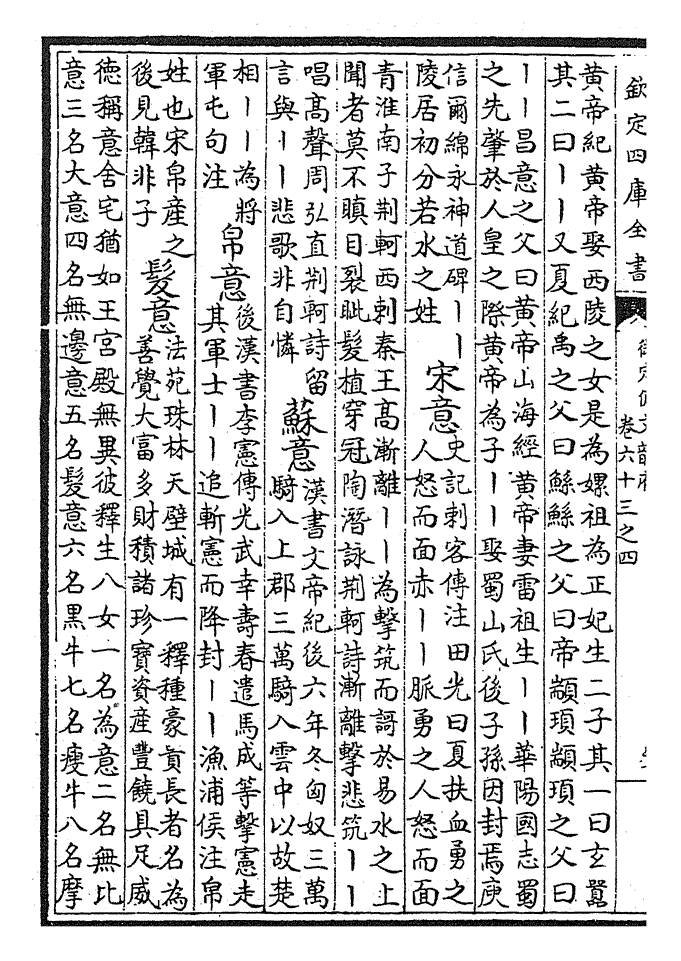 欽定四庫全書
卷六十三之四
黃帝紀黃帝娶西陵之女是為嫘祖為正妃生二子其一曰玄囂
其二曰丨丨又夏紀禹之父曰鯀鯀之父曰帝顓頊顓頊之父曰
丨丨昌意之父曰黃帝山海經黃帝妻雷祖生丨丨華陽國志蜀
之先肇於人皇之際黃帝為子丨丨娶蜀山氏後子孫因封焉庾
信爾綿永神道碑丨丨
陵居初分若水之姓
宋意
史記刺客傳注田光曰夏扶血勇之
人怒而面赤丨丨脈勇之人怒而面
青淮南子荆軻西刺秦王高漸離丨丨為擊筑而謌於易水之上
聞者莫不瞋目裂眦髮植穿冠陶潛詠荆軻詩漸離擊悲筑丨丨
唱高聲周弘直荆軻詩留
言與丨丨悲歌非自憐
蘇意
漢書文帝紀後六年冬匈奴三萬
騎入上郡三萬騎入雲中以故楚
相丨丨為將
軍屯句注
帛意
後漢書李憲傳光武幸壽春遣馬成等擊憲走
其軍士丨丨追斬憲而降封丨丨漁浦侯注帛
姓也宋帛產之
後見韓非子
髮意
法苑珠林天壁城有一釋種豪貴長者名為
善覺大富多財積諸珍寶資產豐饒具足威
德稱意舍宅猶如王宮殿無異彼釋生八女一名為意二名無比
意三名大意四名無邊意五名髮意六名黑牛七名瘦牛八名摩